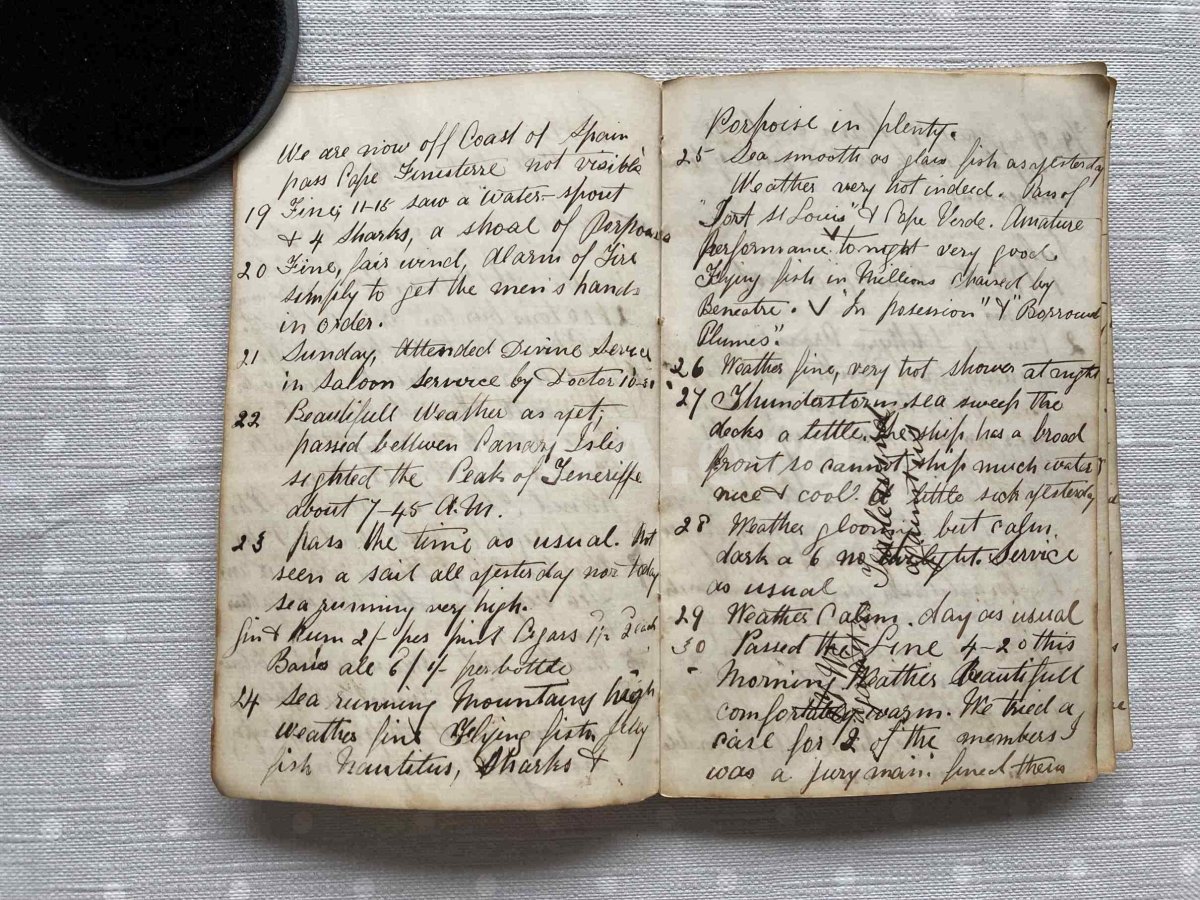 We are now off Coast of Spain
pass Cape Finesterre not visible
19 Fine, 11-15 saw a Water-spout
& 4 Sharks, a shoal of
20 Fine, fair wind, Alarm of Fire
simply to get the men's hands
in order.
21 Sunday, Attended Divine Service
in Saloon Serverce by Doctor
22 Beautifull Weather as yet;
passed bettwen Canary Isles
sighted the Peak of Teneriffe
about 7-45 A.M.
23 pass the time as usual. Not
seen a sail all yesterday nor today
sea running very high.
Gin & Rum 2/- per pint Cigars
Bass's ale 6/ per bottle
24 Sea running Mountains high
Weather fine Flying fish, Jelly
fish Nautilus, Sharks &
Porpoise in plenty.
25 Sea smooth as glass fish as yesterday
Weather very hot indeed. Pas of
"Port St Louis" & Cape Verde. Amature
performance tonight very good.
Flying fish in Millions Chaired by
V "In posession" & "Borrowed
Plumes".
26 Weather fine, very hot shower at night
27 Thunderstorm sea sweep the
decks a little. The ship has a broad
front so cannot ship much water
nice & cool. a little sick yesterday
28 Weather gloomy but calm
dark a 6 no twilight. Service
as usual
29 Weather Calm. day as usual
30 Passed the Line 4-20 this
Morning Weather beautifull
comfortably warm. We tried a
case for 2 of the members I
was a jury man. fined them